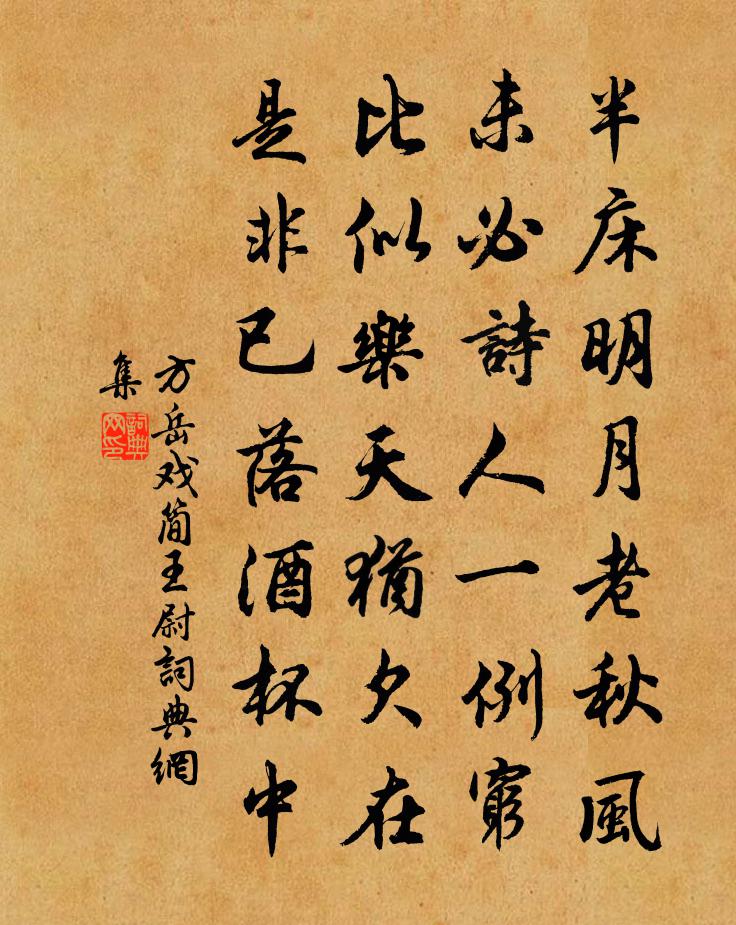 半床明月老秋風
未必詩人一例窮
比似樂天猶欠在
是非已落酒杯中
方岳戏簡王尉詞典網
集
詞典
网印